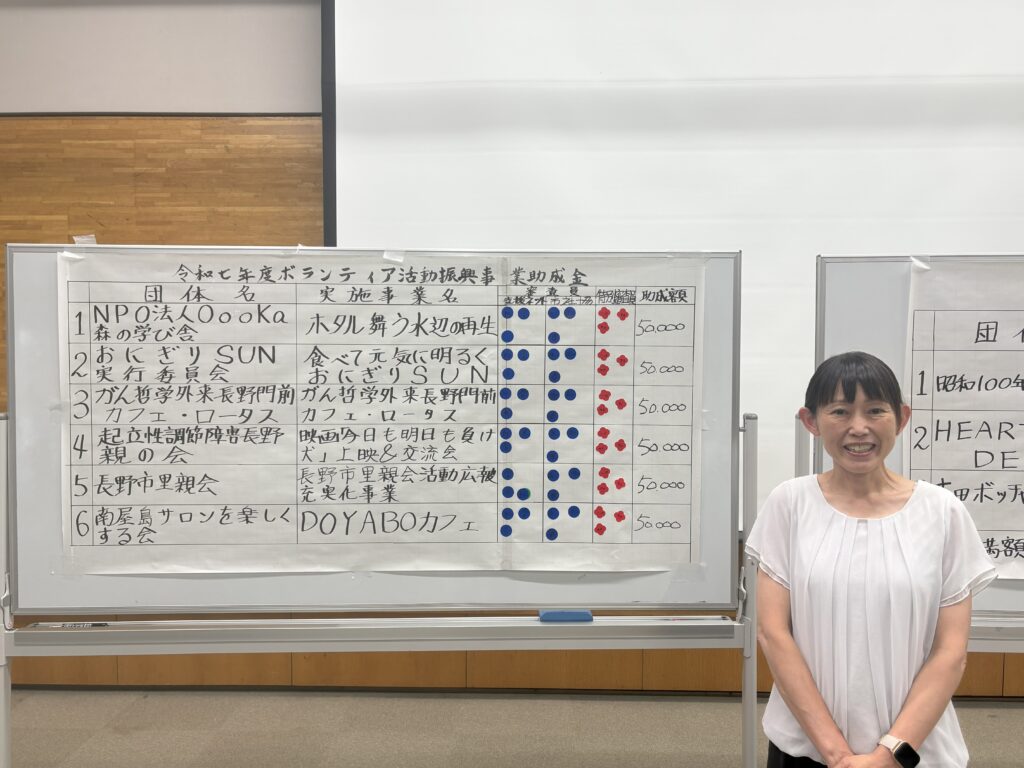 令和七年度ボランティア活動振興事業助成金
団体名 実施事業名 審査員 助成額
1 NPO法人OooKa
森の学び舎 ホタル舞う水辺の再生 50.000
2 おにぎりSUN
実行委員会 食べて元気に明るく
おにぎりSUN 50.000
3 がん哲学外来長野門前
カフェ・ロータス がん哲学外来長野門前
カフェ・ロータス 50.000
4 起立性調節障害長野
親の会 映画「今日も明日も負け
犬」上映&交流会 50.000
5 長野市里親会 長野市里親会活動広報
充実化事業 50.000
6 南屋島サロンを楽しく
する会 DOYABOカフェ 50.000
団
1 昭和100年
2 HEART
DE
田ボッチャ
満額